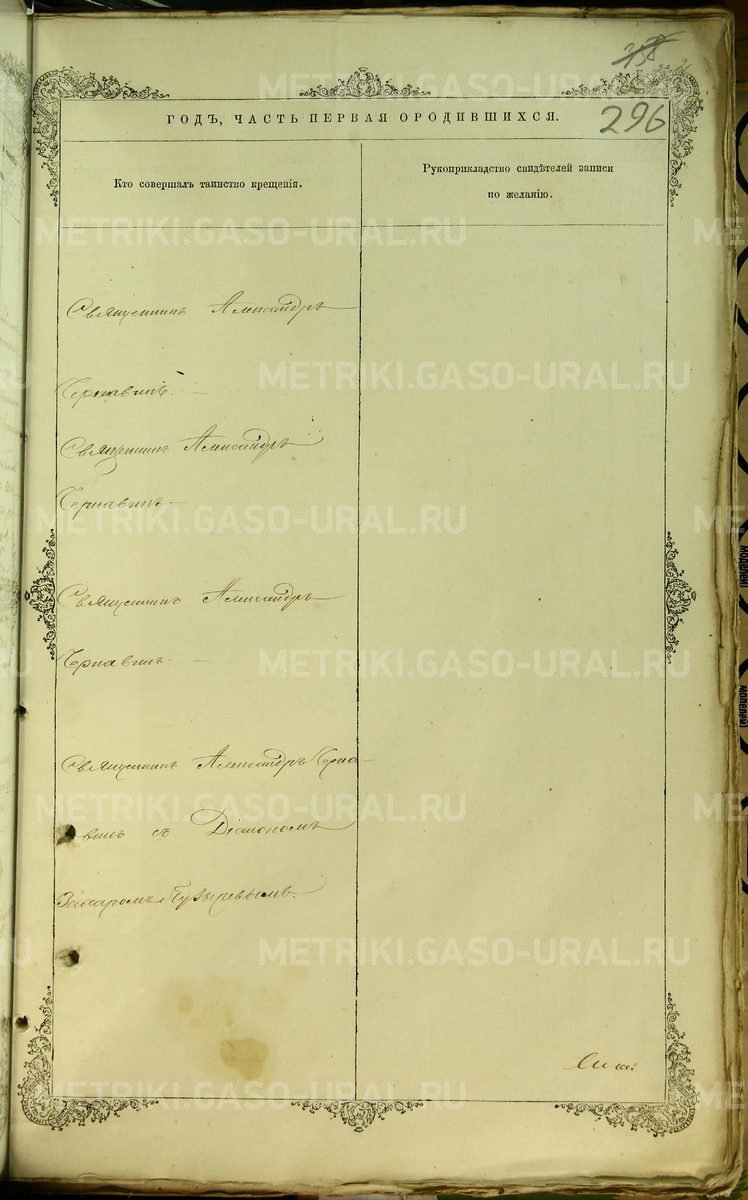 296
ГОДЪ, ЧАСТЬ ПЕРВАЯ ОРОДИВШИХСЯ.
Кто совершалъ таинство крещенія.
Рукоприкладство свидѣтелей записи
по желанію.
Священникъ Александръ
Чернавинъ.
Священникъ Александръ
Чернавинъ
Священникъ Александръ
Чернавинъ.
Священникъ Александръ Черна-
винъ съ Діакономъ
Захаромъ Пузыревымъ.
METRIKI.GASO-URAL.RU